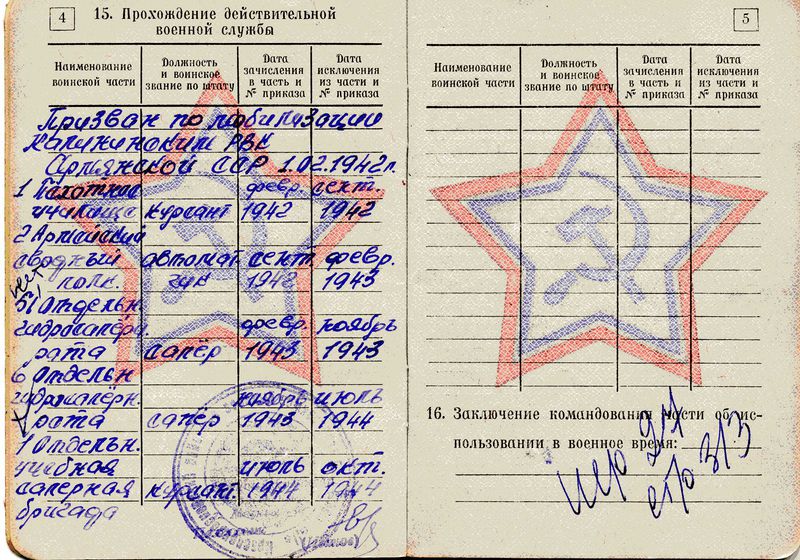 4
15. Прохождение действительной
военной службы
Наименование воинской части
Должность и воинское звание по штату
Дата зачисления в часть и № приказа
Дата исключения из части и № приказа
Призван по мобилизации
Калининским РВК
Армянской ССР 1.02.1942г.
1 Пехотное февр. сент.
училище курсант 1942 1942
2 Армейский
сводный автомат сент. февр.
полк. чик 1942 1943
51 Отдельн
гидросапёрн. февр. ноябрь
рота сапёр 1943 1943
6 Отдельн
гидросапёрн. ноябрь июль
рота сапёр 1943 1944
1 Отдельн.
учебная июль окт.
саперная курсант. 1944 1944
бригада
5
Наименование воинской части
Должность и воинское звание по штату
Дата зачисления в часть и № приказа
Дата исключения из части и № приказа
16. Заключение командования части об ис-
пользовании в военное время:
пер 24
стр 313